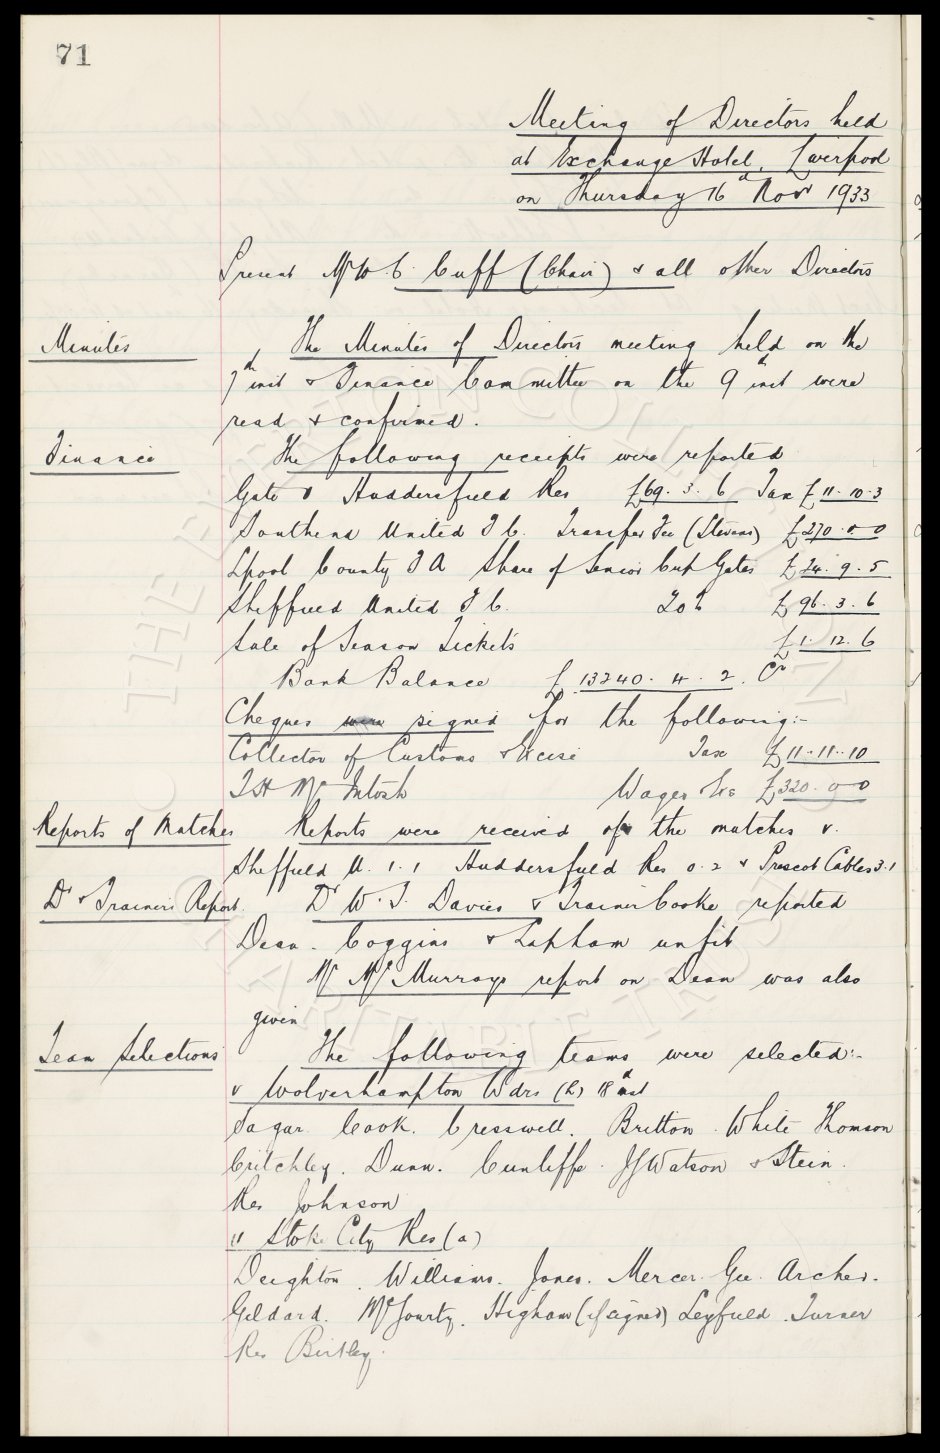 71
Meeting of Directors held
at Exchange Hotel, Liverpool
on Thursday 16th Novr 1933
Present Mr W C. Cuff (Chair) & all other Directors
Minutes The Minutes of Directors meeting held on the
7th inst & Finance Committee on the 9th inst were
read & confirmed.
Finance The following receipts were reported
Gate v Huddersfield Res £69. 3. 6 Tax £11. 10. 3
Southend United F C. Transfer Fee (Stevens) £270. 0. 0
Lpool County F A Share of Senior Cup Gates £24. 9. 5
Sheffield United F C. 20% £96. 3. 6
Sale of Season Tickets £1. 12. 6
Bank Balance £13240. 4. 2. Cr
Cheques were signed for the following:-
Collector of Customs & Excise Tax £11. 11. 10
T H McIntosh Wages &c £320. 0. 0
Reports of Matches Reports were received of the matches v.
Sheffield U. 1. 1 Huddersfield Res 0. 2 & Prescot Cables 3. 1
Dr & Trainers Report. Dr W. J. Davies & Trainer Cooke reported
Dean. Coggins & Lapham unfit
Mr McMurrays report on Dean was also
given
Team Selections The following teams were selected:-
v Wolverhampton Wdrs (h) 18th inst
Sagar. Cook. Cresswell. Britton. White Thomson
Critchley. Dunn. Cunliffe. JJ Watson & Stein.
Res Johnson
" Stoke City Res (a)
Deighton. Williams. Jones. Mercer. Gee. Archer.
Geldard. McGourty. Higham (if signed) Leyfield. Turner
Res Birtley.
THE EVERTON COLLECTION
CHARITABLE TRUST